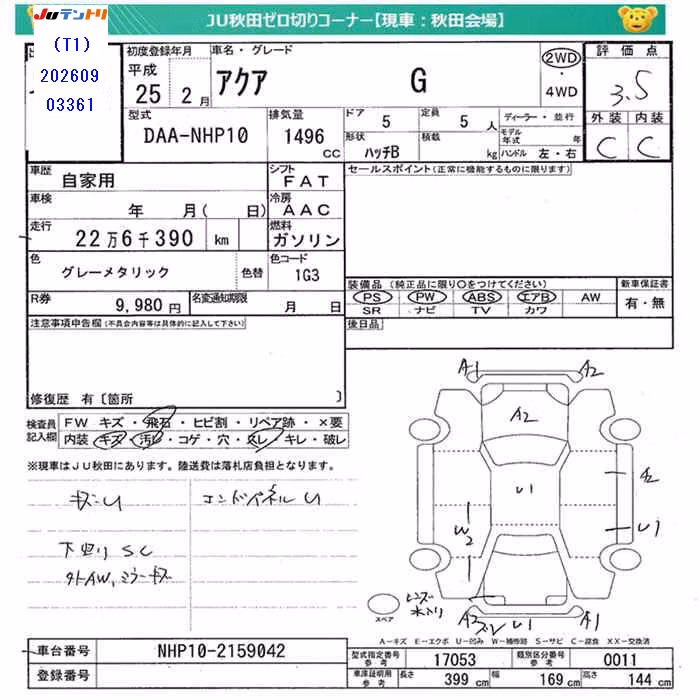 JUテントリ JU秋田ゼロ切りコーナー【現車：秋田会場】
(T1)
202609
03361
初度登録年月 車名・グレード 評価点
平成 25 2月 アクア G 2WD・4WD 3.5
型式 排気量 ドア 定員 ディーラー・並行 外装 内装
DAA-NHP10 1496 cc 5 5人 モデル年式 年 C C
形状 積載
ハッチB kg ハンドル 左・右
車歴 自家用 シフト FAT セールスポイント(正常に機能するものに限ります)
車検 年 月( 日) 冷房 AAC
走行 22万6千390 km 燃料 ガソリン
色 グレーメタリック 色替 色コード 1G3
装備品 (純正品に限り○をつけてください) 新車保証書
PS PW ABS エアB AW 有・無
SR ナビ TV カワ
R券 9,980円 名変通知期限 月 日
注意事項申告欄(不具合内容等は具体的に記入して下さい) 後日品
修復歴 有〔箇所 〕
検査員記入欄 FW キズ・飛石・ヒビ割・リペア跡・×要
内装 キズ・汚レ・コゲ・穴・スレ・キレ・破レ
※現車はJU秋田にあります。陸送費は落札店負担となります。
キズU エンドパネルU
下回りSC
外AW,ミラーキズ
A1 A2
A2
U1
W2
A2
U1
レンズ
水入り
A2 ズレ U1 A1
スペア
A－キズ E－エクボ U－凹み W－補修跡 S－サビ C－腐食 XX－交換済
車台番号 NHP10-2159042
登録番号
型式指定番号 参考 17053 類別区分番号 参考 0011
車庫証明用 参考 長さ 399cm 幅 169cm 高さ 144cm